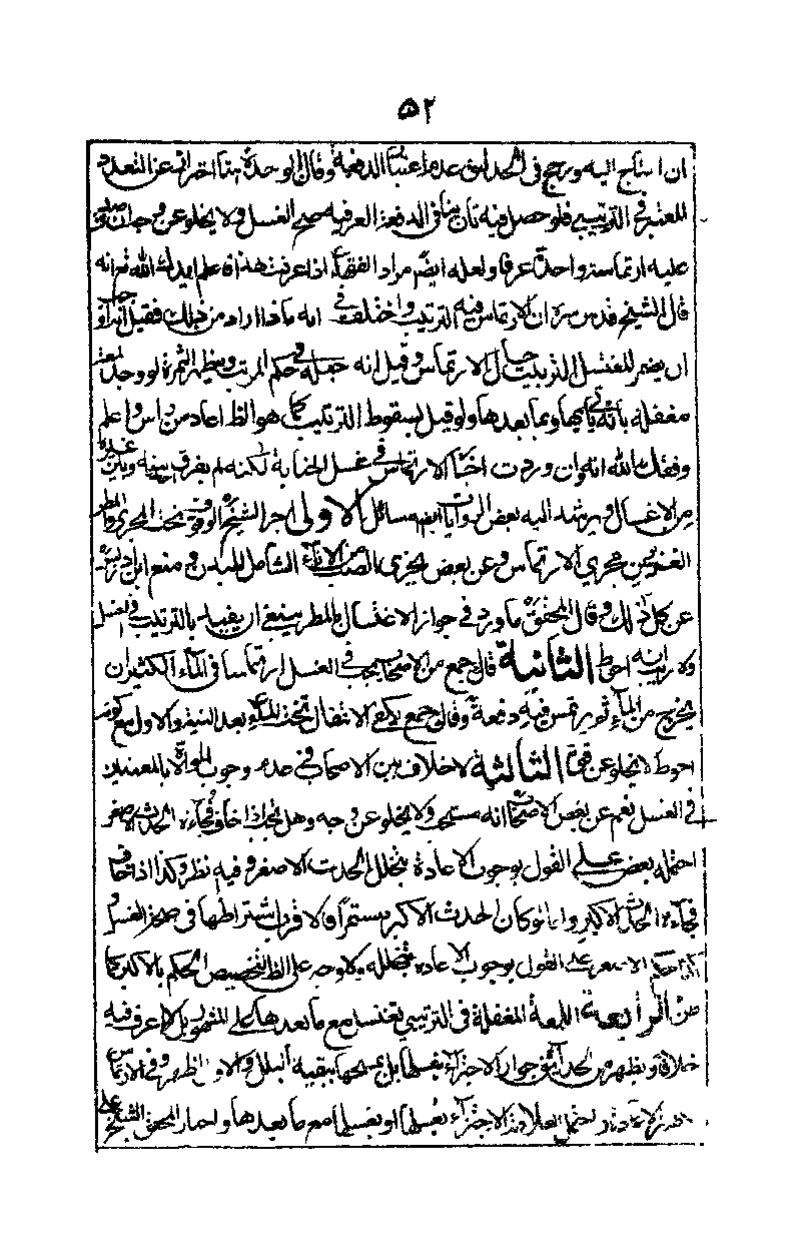 ٥٢
ان احتاج اليه ورجح في الحدائق عدم اعتبار الدفعة وقال الوحدة هنا احتراز عن التعدد
المعتبر في الترتيبي فلو حصل فيه تأن ينافي الدفعة العرفيه صح الغسل ولا يخلو عن وجه ان صدق
عليه ارتماسة واحدة عرفا ولعله ايضا مراد الفقهاء اذا عرفت هذا فاعلم ايدك الله ثم انه
قال الشيخ قدس سره ان الارتماس فيه الترتيب واختلف في انه ماذا اراد من ذلك فقيل انه اراد
ان يضمر للغسل الترتيب حال الارتماس وقيل انه جعله في حكم المرتب ويظهر الثمرة لو وجد لمعة
مغفلة بانه يأتي بها وبما بعدها ولو قيل بسقوط الترتيب كما هو الظ اعاد من رأس واعلم
وفقك الله انه وان وردت اخبار الارتماس في غسل الجنابة لكنه لم يفرق احد بينه وبين غيره
من الاغسال ويرشد اليه بعض الروايات ايضا مسائل الاولى اجرى الشيخ الوقوف تحت المجرى والمطر
الغزيرين مجرى الارتماس وعن بعض مجرى الصب من الاناء الشامل للبدن ومنع ابن ادريس
عن كل ذلك وقال المحقق ما ورد في جواز الاغتسال بالمطر ينبغي ان يقيد بالترتيب في الغسل
ولا ريب انه احوط الثانية قال جمع من الاصحاب يجب في الغسل ارتماسا في الماء الكثير ان
يخرج من الماء ثم يرتمس فيه دفعة وقال جمع يكفي الانتقال تحت الماء بعد النية والاول مع كونه
احوط لا يخلو عن قوة الثالثة لا خلاف بين الاصحاب في عدم وجوب الموالاة بالمعنيين
في الغسل نعم عن بعض الاصحاب انه مستحب ولا يخلو عن وجه وهل يجب اذا خاف فجأة الحدث الاصغر
احتمله بعض على القول بوجوب الاعادة بتخلل الحدث الاصغر وفيه نظر وكذا اذا خاف
فجأة الحدث الاكبر واما لو كان الحدث الاكبر مستمرا فالاقرب اشتراطها في صحة الغسل
على القول بوجوب الاعادة بتخلله ولا وجه على الظ لتخصيص الحكم بالاكبر كما
ظن الرابعة اللمعة المغفلة في الترتيبي يغتسل مع ما بعدها على المشهور بل لا اعرف فيه
خلافا ويظهر من الحدائق جواز الاجتزاء بغسلها بل بمسحها ببقية البلل والاول اظهر وفي الارتماس
احتمل العلامة الاجتزاء بغسلها او بغسلها مع ما بعدها واختار المحقق الشيخ علي